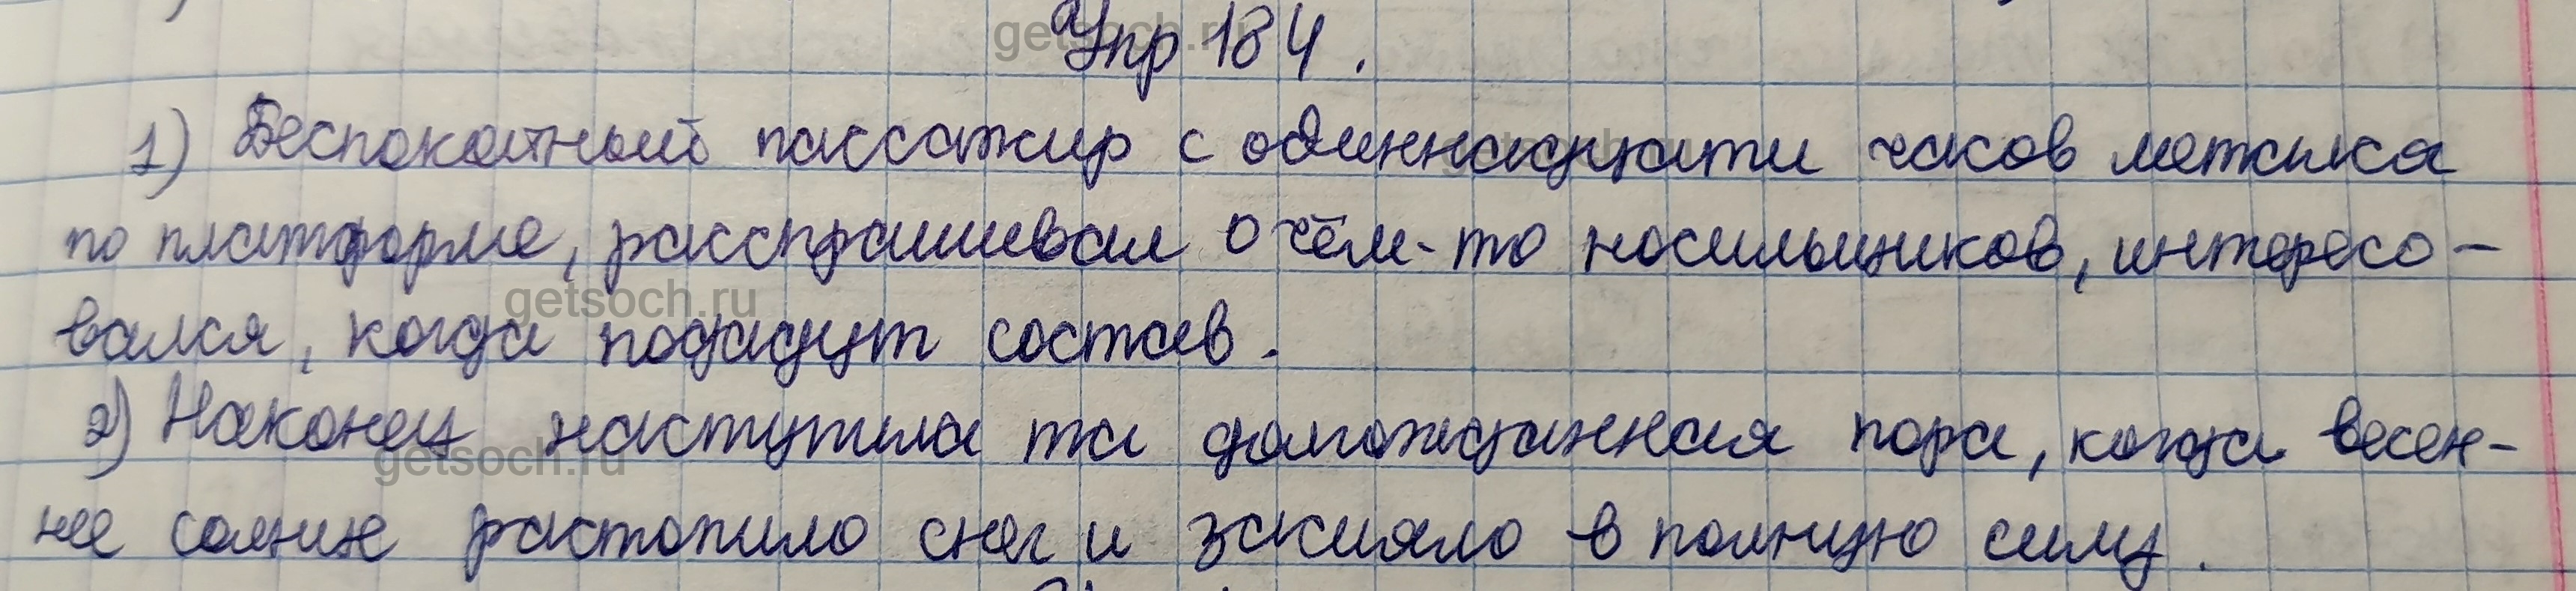 Упр 184.
1) Беспокойный пассажир с одиннадцати часов метался
по платформе, расспрашивал о чём-то носильщиков, интересо-
вался, когда подадут состав.
2) Наконец наступила та долгожданная пора, когда весен-
нее солнце растопило снег и засияло в полную силу.
getsoch.ru
getsoch.ru
getsoch.ru